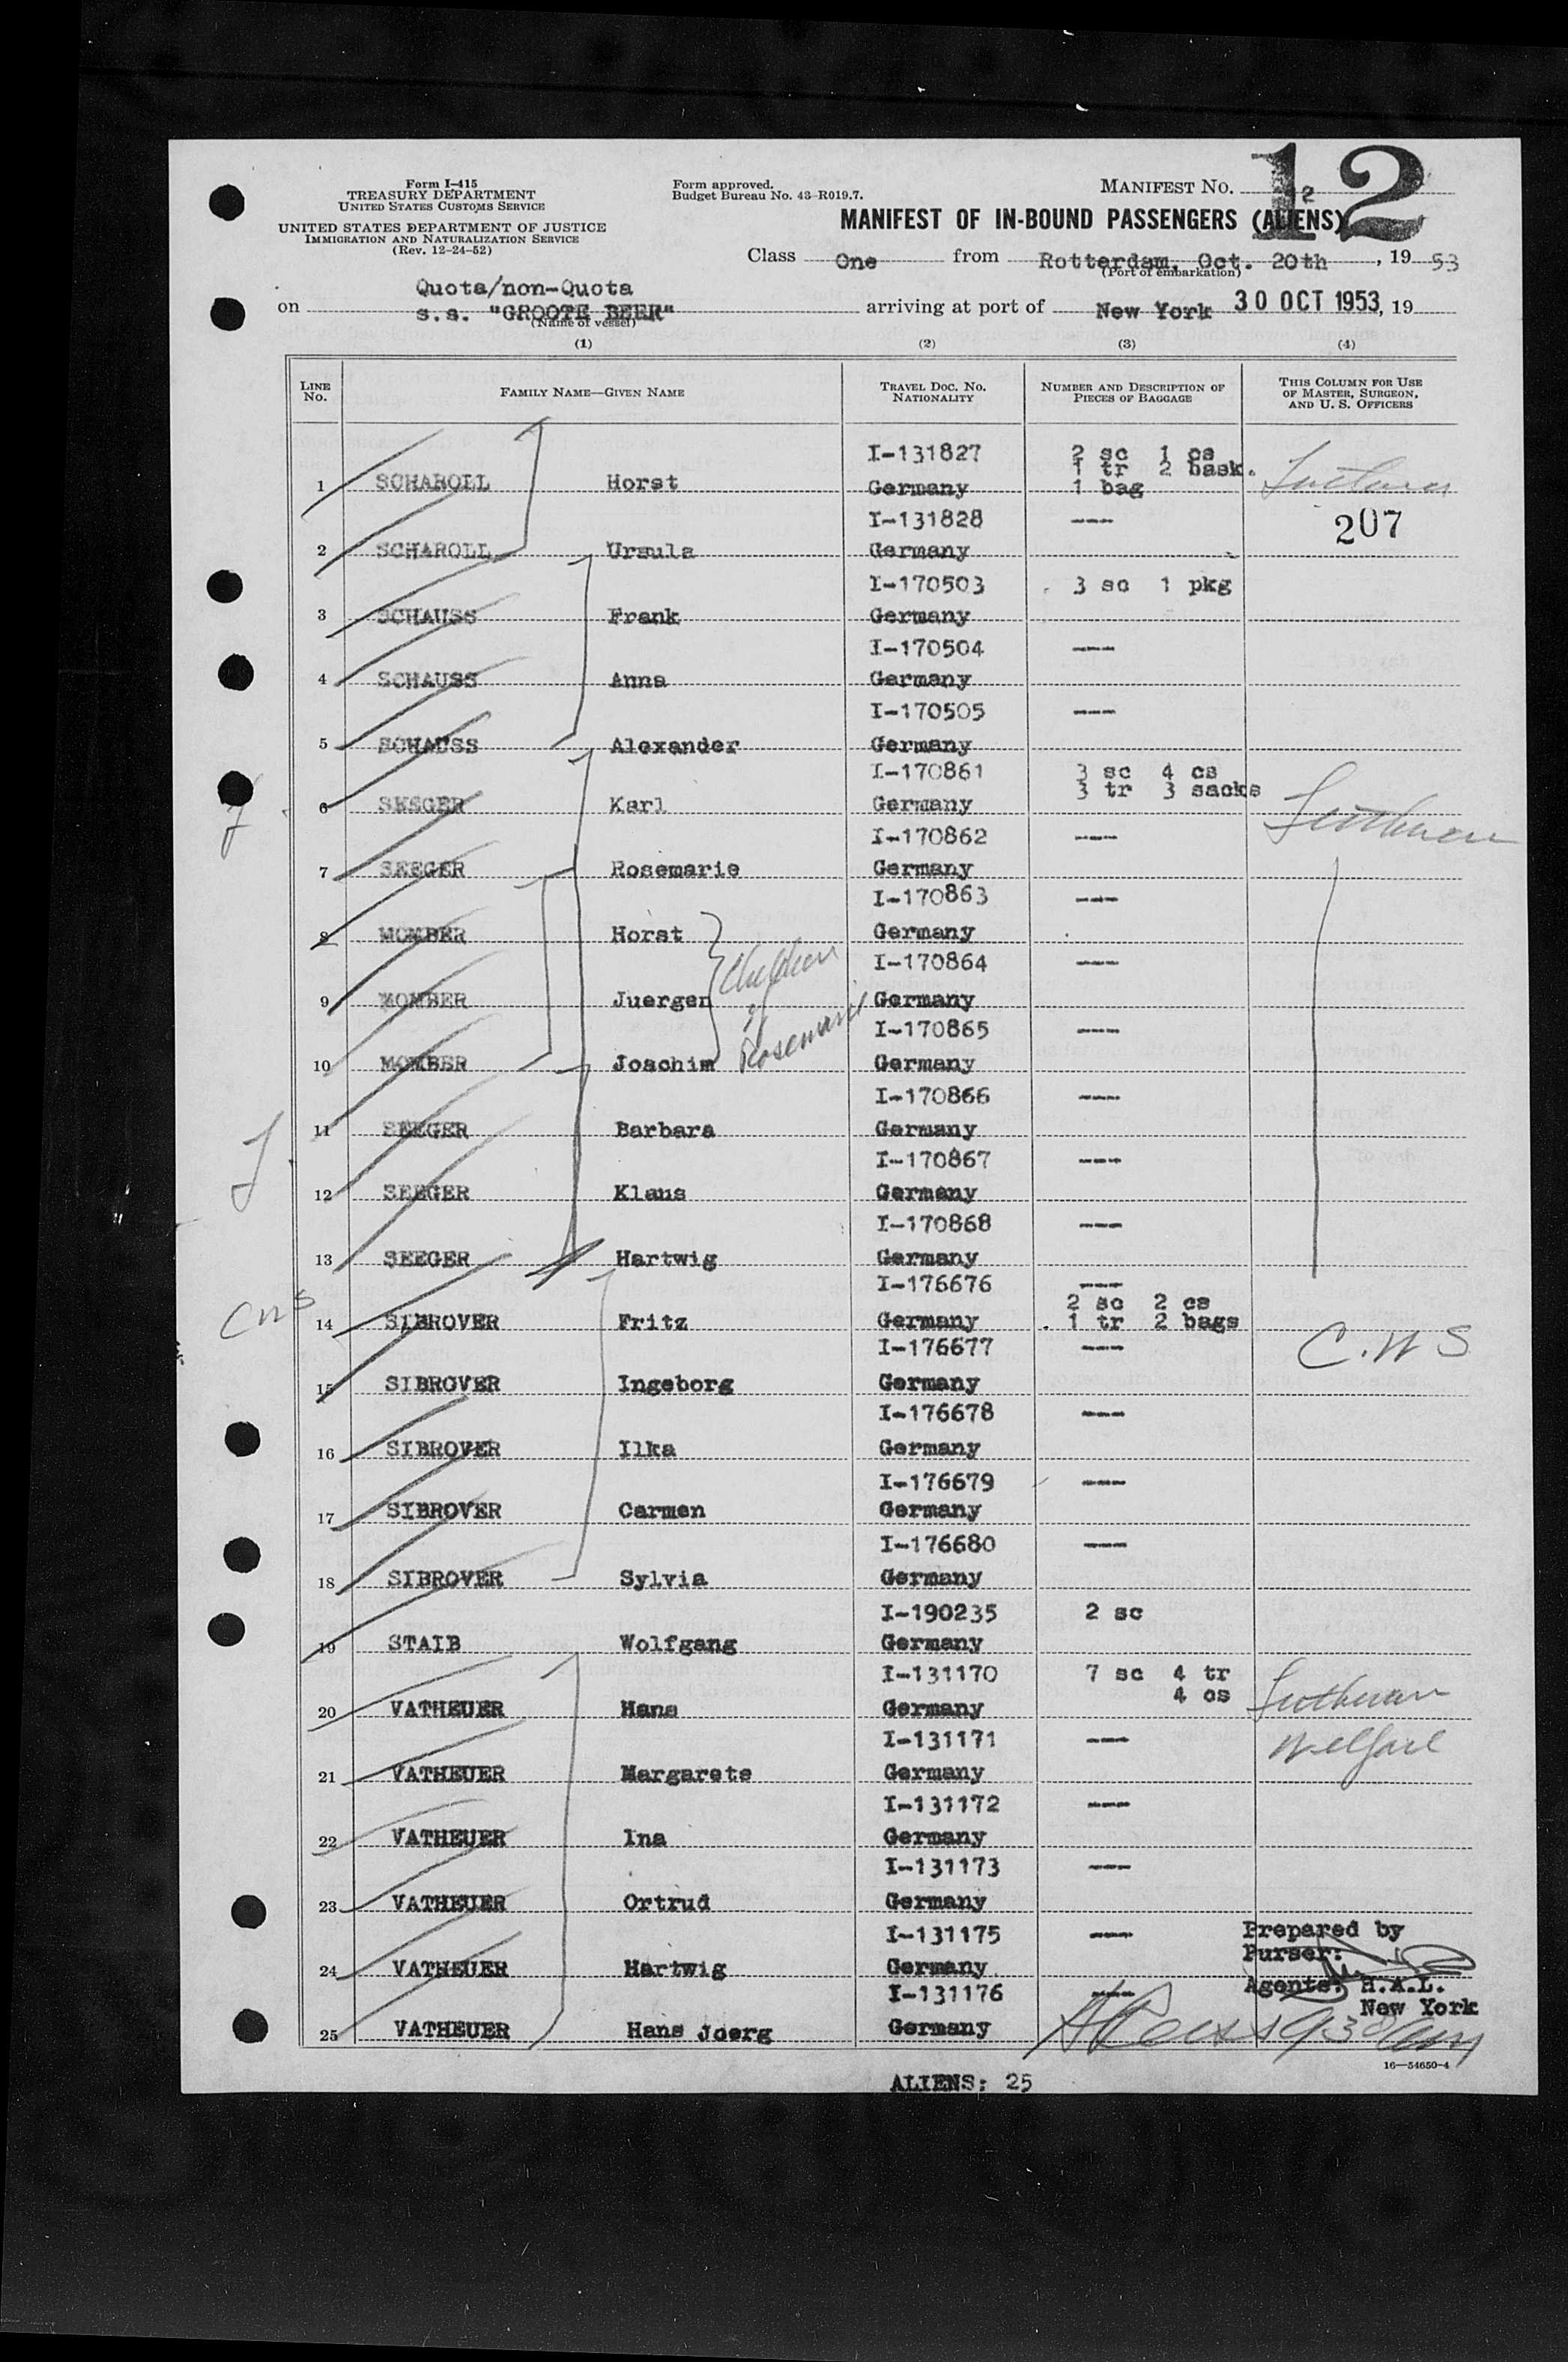 Form I-415
TREASURY DEPARTMENT
UNITED STATES CUSTOMS SERVICE
UNITED STATES DEPARTMENT OF JUSTICE
IMMIGRATION AND NATURALIZATION SERVICE
(Rev. 12-24-52)
Form approved.
Budget Bureau No. 43-R019.7.
MANIFEST NO. 12
12
MANIFEST OF IN-BOUND PASSENGERS (ALIENS)
Class One from Rotterdam, Oct. 20th, 19 53
(Port of embarkation)
Quota/non-Quota
on s.s. "GROOTE BEER" arriving at port of New York 30 OCT 1953, 19
(Name of vessel)
(1) (2) (3) (4)
LINE NO. FAMILY NAME—GIVEN NAME TRAVEL DOC. NO. NATIONALITY NUMBER AND DESCRIPTION OF PIECES OF BAGGAGE THIS COLUMN FOR USE OF MASTER, SURGEON, AND U. S. OFFICERS
I-131827 2 sc 1 cs
1 tr 2 bask.
1 SCHAROLL Horst Germany 1 bag Lutheran
I-131828 --- 207
2 SCHAROLL Ursula Germany
I-170503 3 sc 1 pkg
3 SCHAUSS Frank Germany
I-170504 ---
4 SCHAUSS Anna Germany
I-170505 ---
5 SCHAUSS Alexander Germany
I-170861 3 sc 4 cs
3 tr 3 sacks
6 SEEGER Karl Germany Lutheran
I-170862 ---
7 SEEGER Rosemarie Germany
I-170863 ---
8 MOMBER Horst Germany
children of Rosemarie
I-170864 ---
9 MOMBER Juergen Germany
I-170865 ---
10 MOMBER Joachim Germany
I-170866 ---
11 SEEGER Barbara Germany
I-170867 ---
12 SEEGER Klaus Germany
I-170868 ---
13 SEEGER Hartwig Germany
I-176676 ---
2 sc 2 cs
CWS 14 SIBROVER Fritz Germany 1 tr 2 bags C.W S
I-176677 ---
15 SIBROVER Ingeborg Germany
I-176678 ---
16 SIBROVER Ilka Germany
I-176679 ---
17 SIBROVER Carmen Germany
I-176680 ---
18 SIBROVER Sylvia Germany
I-190235 2 sc
19 STAIB Wolfgang Germany
I-131170 7 sc 4 tr
4 cs
20 VATHEUER Hans Germany Lutheran
I-131171 --- Welfare
21 VATHEUER Margarete Germany
I-131172 ---
22 VATHEUER Ina Germany
I-131173 ---
23 VATHEUER Ortrud Germany
I-131175 --- Prepared by
Purser:
24 VATHEUER Hartwig Germany
I-131176 --- Agents: H.A.L.
New York
25 VATHEUER Hans Joerg Germany
16—54650-4
ALIENS: 25